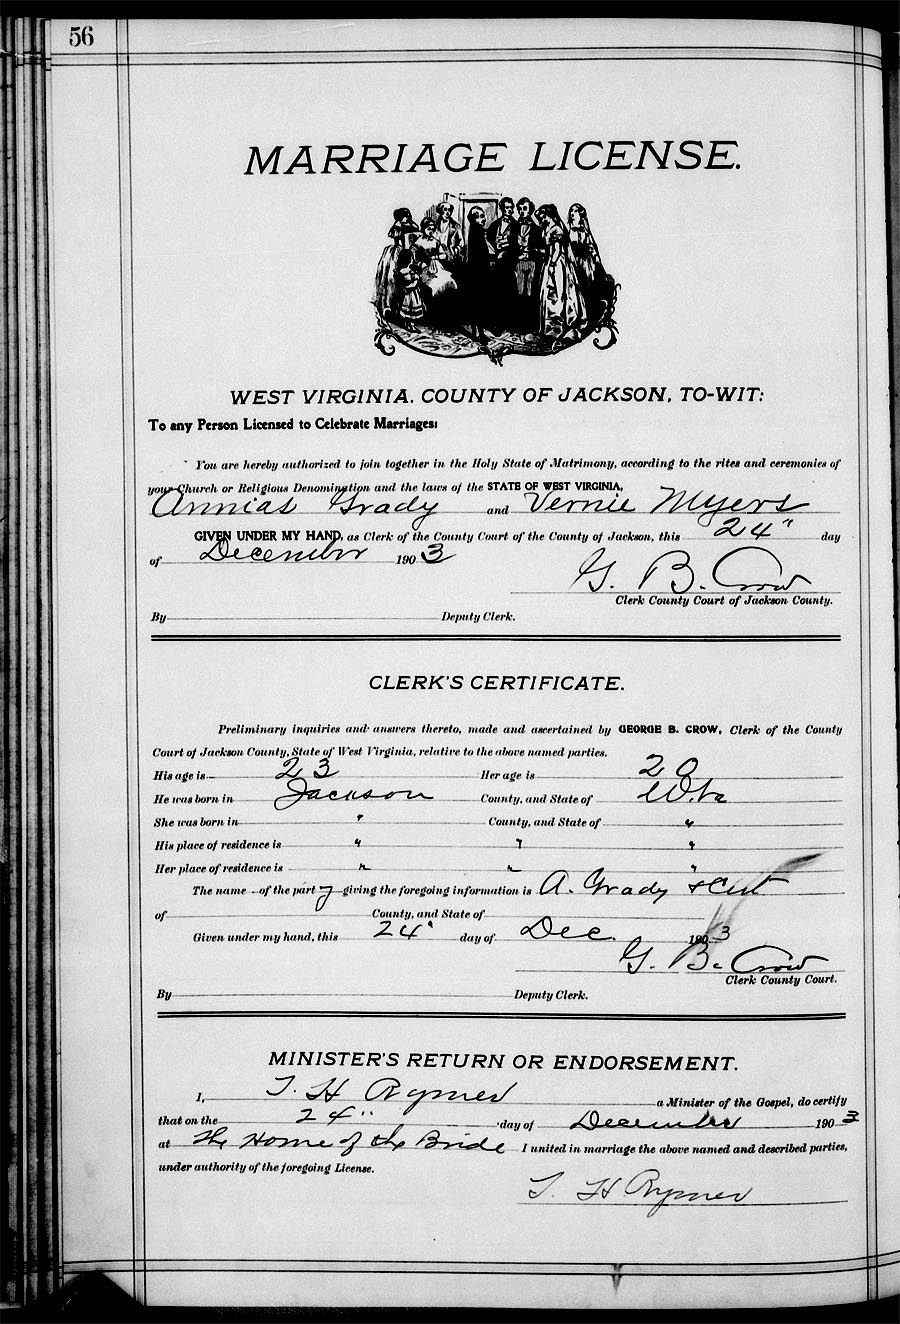 56
MARRIAGE LICENSE.
WEST VIRGINIA. COUNTY OF JACKSON, TO-WIT:
To any Person Licensed to Celebrate Marriages:
You are hereby authorized to join together in the Holy State of Matrimony, according to the rites and ceremonies of
your Church or Religious Denomination and the laws of the STATE OF WEST VIRGINIA,
Annias Grady and Vernie Myers
GIVEN UNDER MY HAND, as Clerk of the County Court of the County of Jackson, this 24" day
of December 1903
G. B. Crow
Clerk County Court of Jackson County.
By Deputy Clerk.
CLERK'S CERTIFICATE.
Preliminary inquiries and answers thereto, made and ascertained by GEORGE B. CROW, Clerk of the County
Court of Jackson County, State of West Virginia, relative to the above named parties.
His age is 23 Her age is 20
He was born in Jackson County, and State of W.Va
She was born in " County, and State of "
His place of residence is " " "
Her place of residence is " " "
The name of the party giving the foregoing information is A. Grady
of County, and State of
Given under my hand, this 24" day of Dec. 1903
G. B. Crow
Clerk County Court.
By Deputy Clerk.
MINISTER'S RETURN OR ENDORSEMENT.
I, T. H Rymer a Minister of the Gospel, do certify
that on the 24" day of December 1903
at the Home of the Bride I united in marriage the above named and described parties,
under authority of the foregoing License.
T. H Rymer